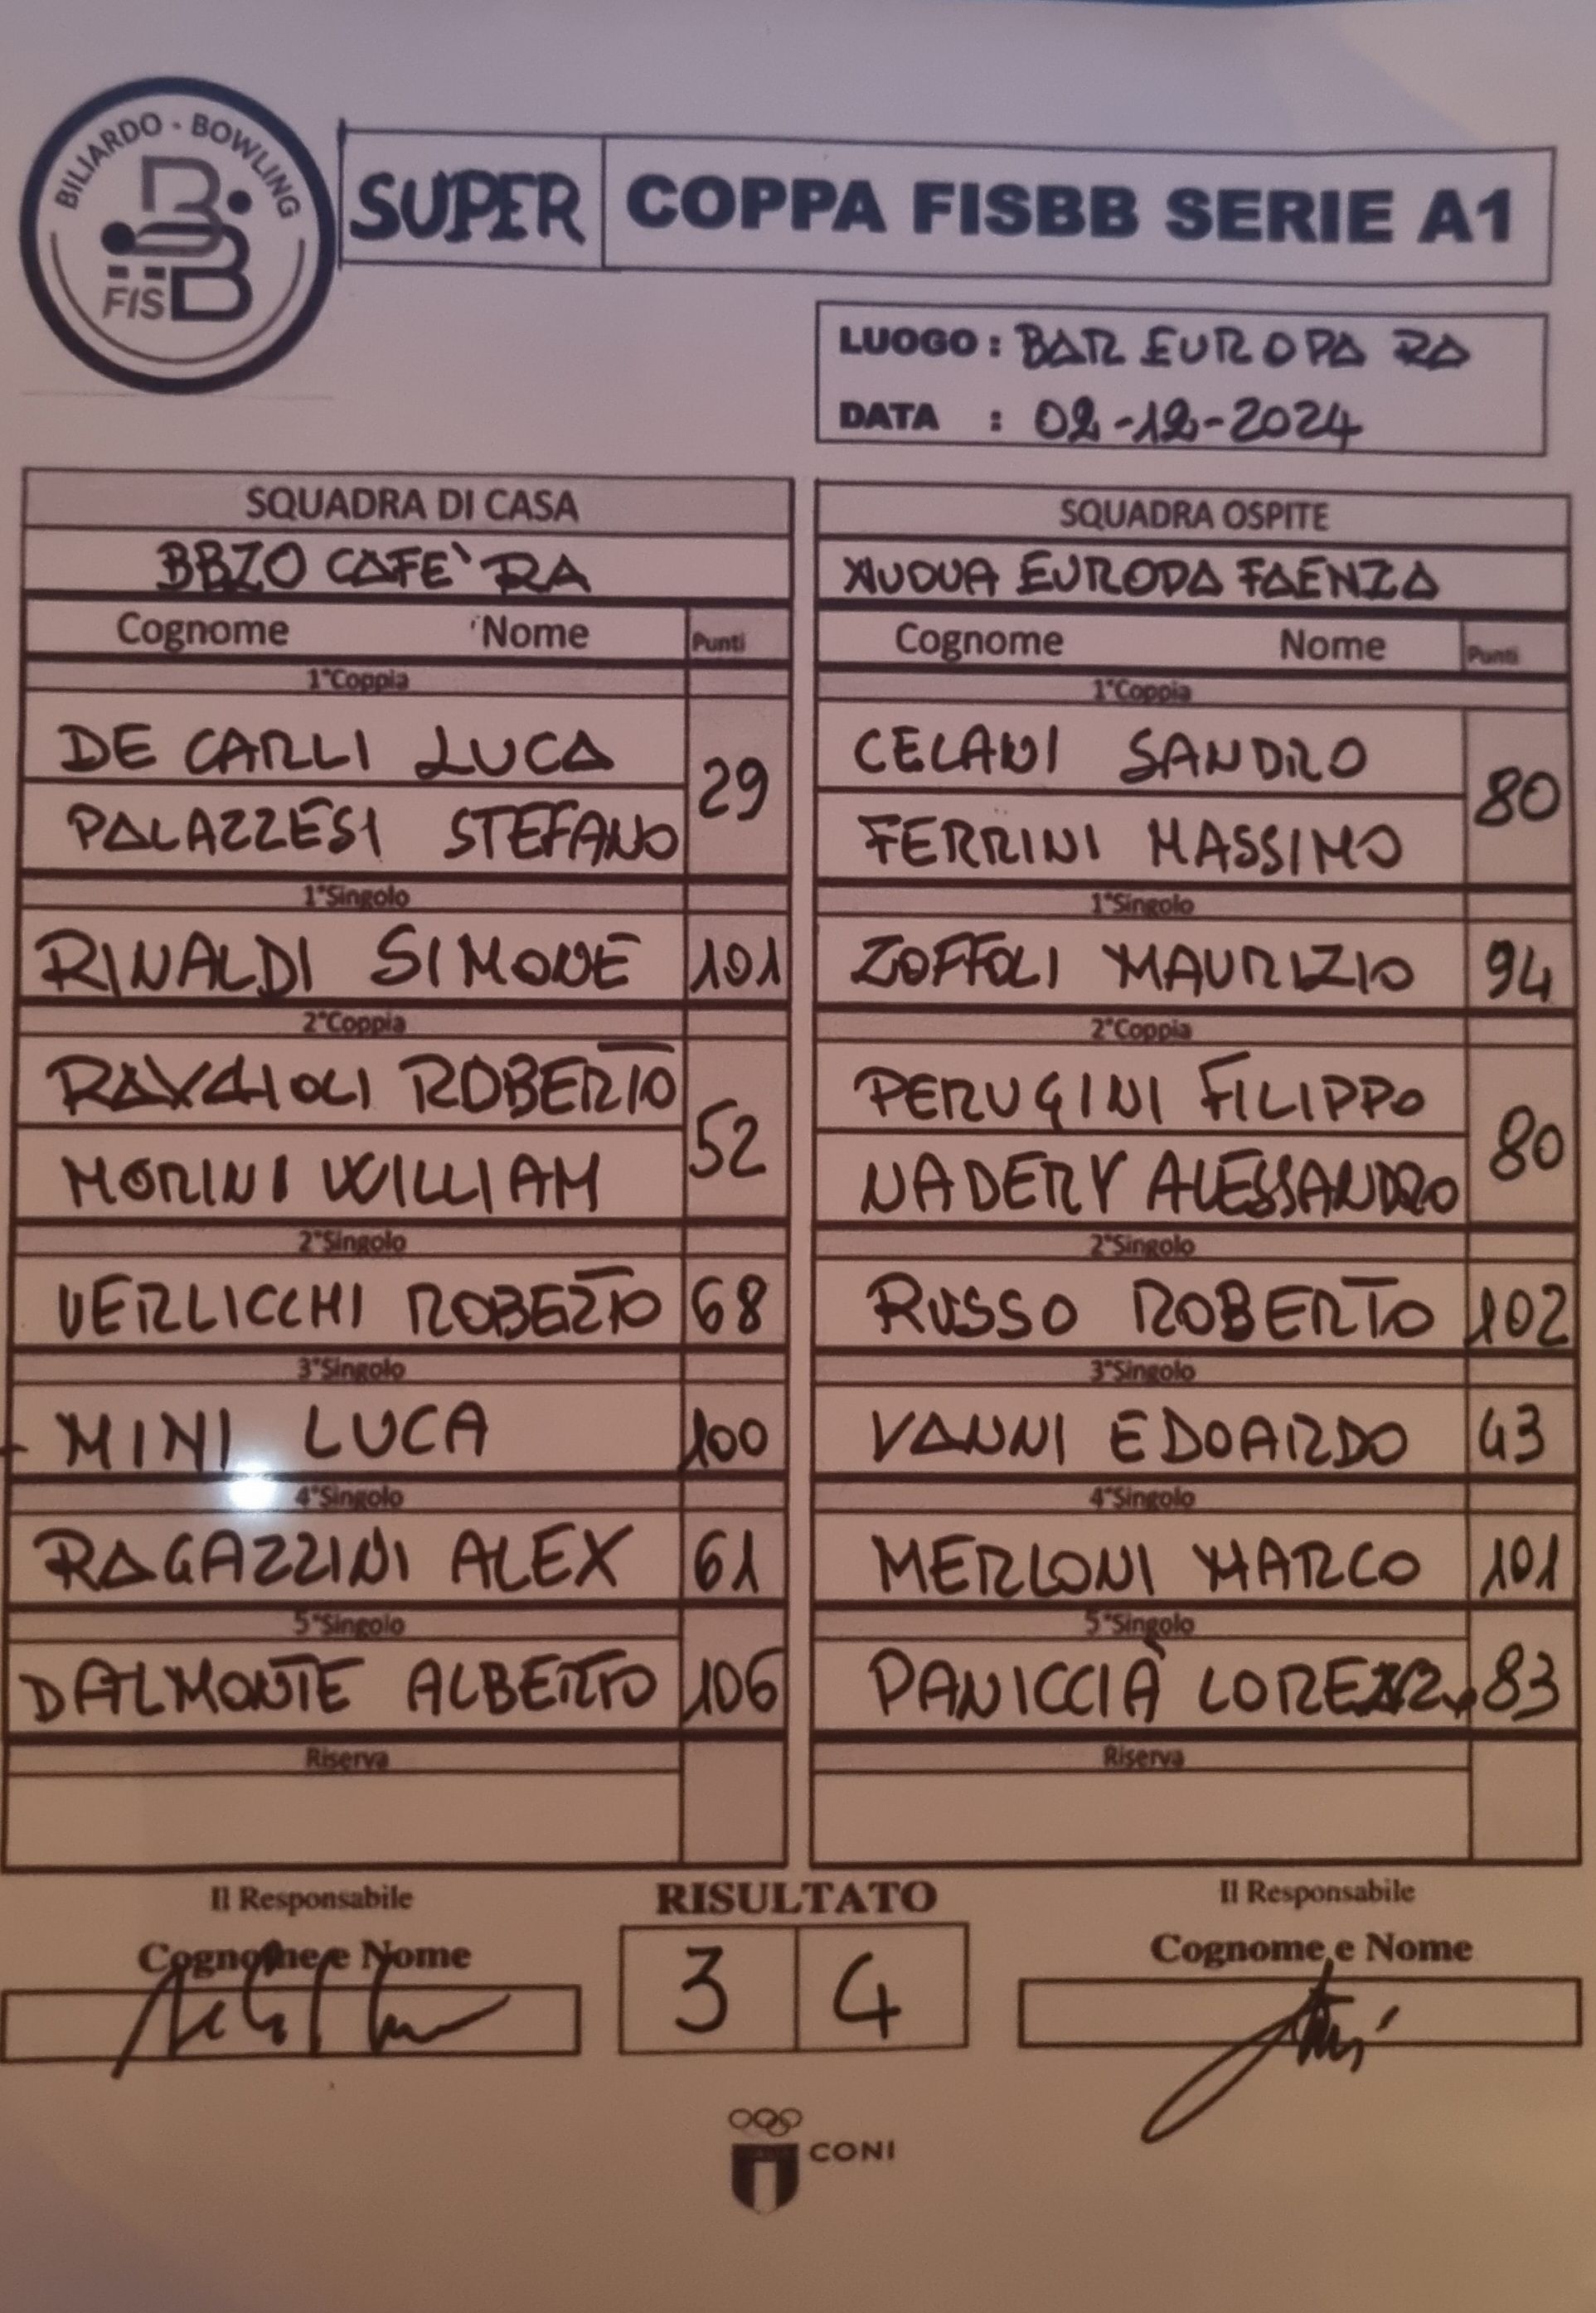 BILIARDO - BOWLING
FISBB
SUPER COPPA FISBB SERIE A1
LUOGO : BAR EUROPA RA
DATA : 02-12-2024
SQUADRA DI CASA
BBZO CAFE' RA
Cognome Nome Punti
1°Coppia
DE CARLI LUCA
29
PALAZZESI STEFANO
1°Singolo
RINALDI SIMONE 101
2°Coppia
RAVAIOLI ROBERTO
52
MORINI WILLIAM
2°Singolo
VERLICCHI ROBERTO 68
3°Singolo
MINI LUCA 100
4°Singolo
RAGAZZINI ALEX 61
5°Singolo
DALMONTE ALBERTO 106
Riserva
SQUADRA OSPITE
NUOVA EUROPA FAENZA
Cognome Nome Punti
1°Coppia
CELANI SANDRO
80
FERRINI MASSIMO
1°Singolo
ZOFFOLI MAURIZIO 94
2°Coppia
PERUGINI FILIPPO
80
NADERY ALESSANDRO
2°Singolo
RUSSO ROBERTO 102
3°Singolo
VANNI EDOARDO 43
4°Singolo
MERLONI MARCO 101
5°Singolo
PANICCIÀ 83
Riserva
Il Responsabile
Cognome e Nome
RISULTATO
3 4
Il Responsabile
Cognome e Nome
CONI